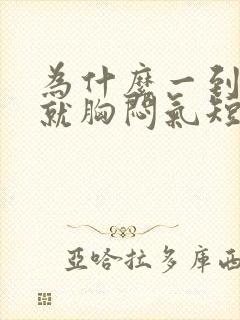 為什麼一到
就胸悶氣短
亞哈拉多庫西